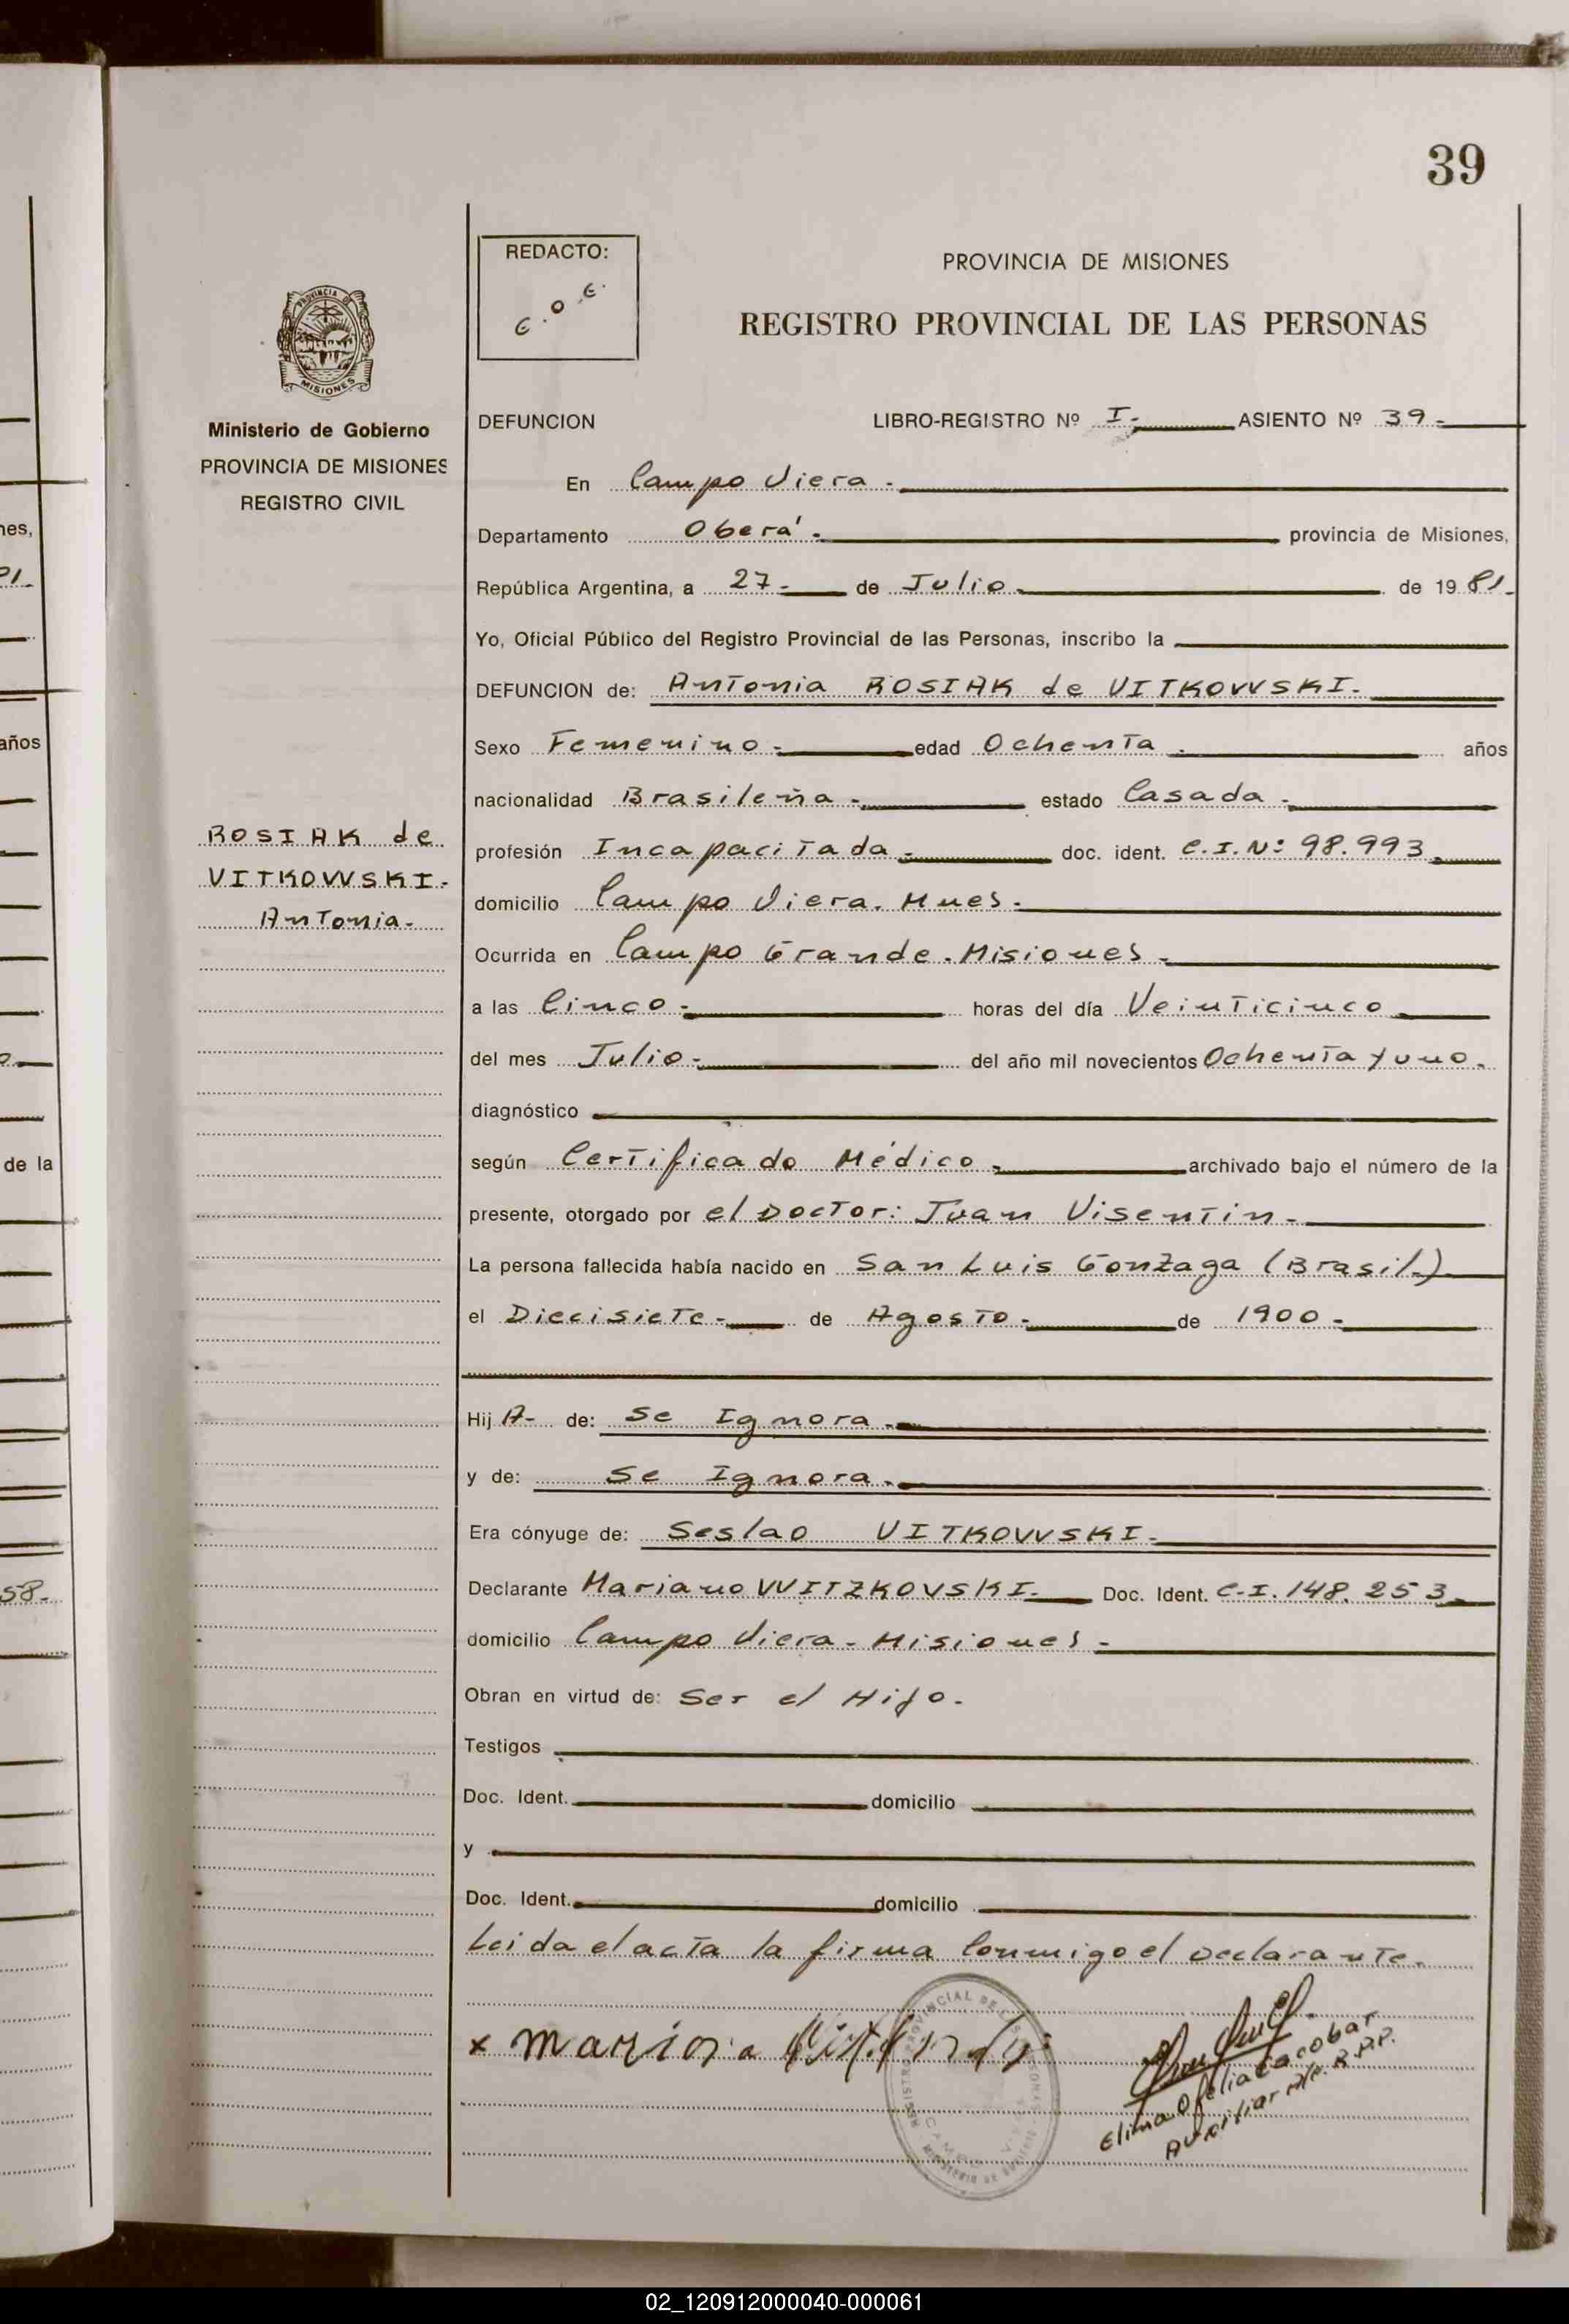 39
REDACTO:
E.O.E.
PROVINCIA DE MISIONES
REGISTRO PROVINCIAL DE LAS PERSONAS
PROVINCIA DE
MISIONES
Ministerio de Gobierno
PROVINCIA DE MISIONES
REGISTRO CIVIL
DEFUNCION LIBRO-REGISTRO Nº I- ASIENTO Nº 39-
En Campo Viera-
Departamento Oberá- provincia de Misiones,
República Argentina, a 27- de Julio- de 1981-
Yo, Oficial Público del Registro Provincial de las Personas, inscribo la
DEFUNCION de: Antonia ROSIAK de VITKOVVSKI-
Sexo Femenino- edad Ochenta- años
nacionalidad Brasileña- estado Casada-
ROSIAK de
VITKOVVSKI-
Antonia-
profesión Incapacitada- doc. ident. C.I.Nº 98.993-
domicilio Campo Viera. Mnes-
Ocurrida en Campo Grande. Misiones-
a las Cinco- horas del día Veinticinco-
del mes Julio- del año mil novecientos Ochenta y uno-
diagnóstico
según Certificado Médico- archivado bajo el número de la
presente, otorgado por el Doctor: Juan Visentin-
La persona fallecida había nacido en San Luis Gonzaga (Brasil-)
el Diecisiete- de Agosto- de 1900-
Hij A- de: Se Ignora-
y de: Se Ignora-
Era cónyuge de: Seslao VITKOVVSKI-
Declarante Mariano VVITZKOVSKI- Doc. Ident. C.I. 148.253-
domicilio Campo Viera- Misiones-
Obran en virtud de: Ser el Hijo-
Testigos
Doc. Ident. domicilio
y
Doc. Ident. domicilio
Leida el acta la firma Conmigo el Declarante.
x
Elina Ofelia
Auxiliar R.P.P.
nes,
81-
años
de la
58-
02_120912000040-000061